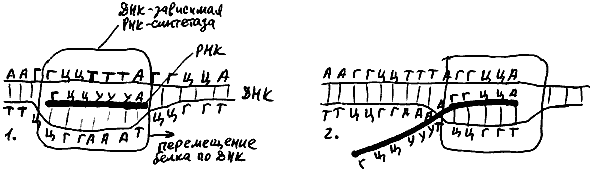 ДНК-зависимая
РНК-синтетаза
РНК
ААГГЦЦТТТАГГЦЦА
ГЦЦУУУА
ДНК
ТТЦЦГГАААТЦЦГГТ
1.
перемещение
белка по ДНК
ААГГЦЦТТТАГГЦЦА
ГГЦЦА
ТТЦЦГГАААТЦЦГГТ
2.
ГЦЦУУУА